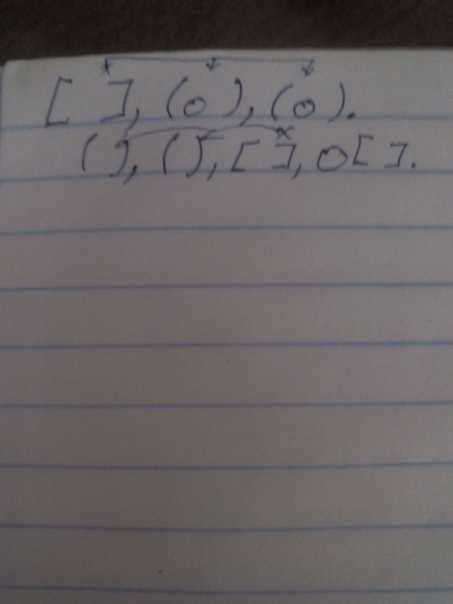 [ ], (o), (o).
( ), ( ), [ ], o[ ].